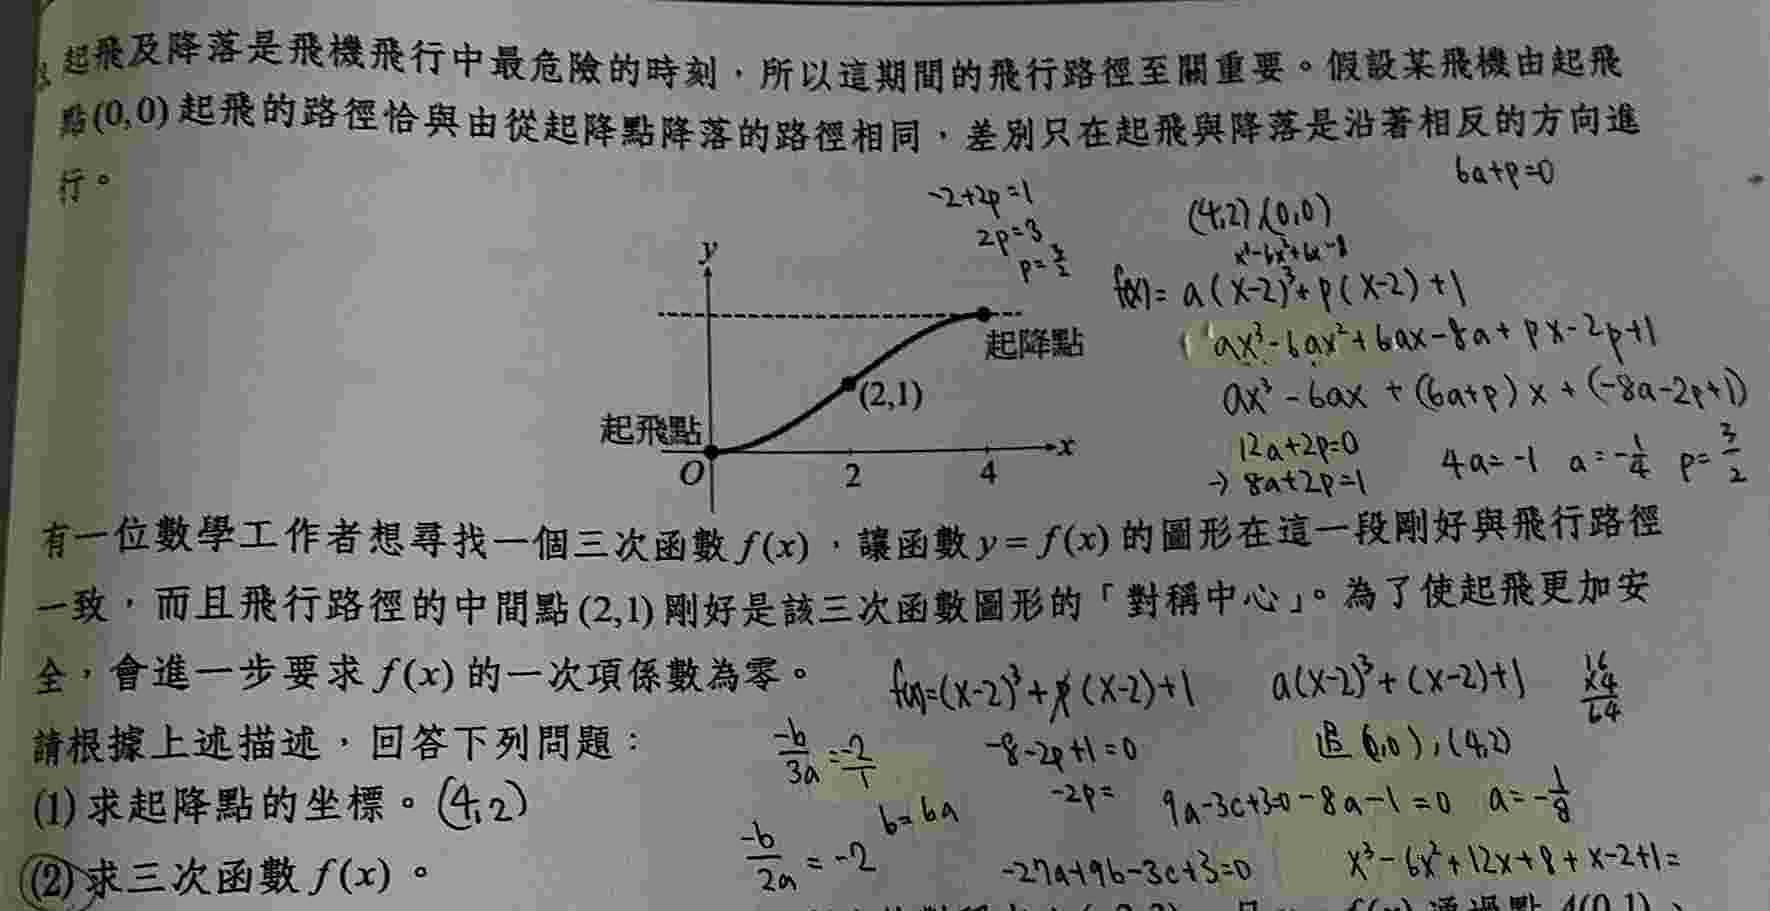 起飛及降落是飛機飛行中最危險的時刻，所以這期間的飛行路徑至關重要。假設某飛機由起飛
點(0,0)起飛的路徑恰與由從起降點降落的路徑相同，差別只在起飛與降落是沿著相反的方向進
行。
6a+p=0
-2+2p=1
2p=3
p=3/2
(4,2),(0,0)
f(x)=a(x-2)³+p(x-2)+1
ax³-6ax²+6ax-8a+px-2p+1
ax³-6ax+(6a+p)x+(-8a-2p+1)
12a+2p=0
→8a+2p=1
4a=-1 a=-1/4 p=3/2
y
起降點
(2,1)
起飛點
O 2 4 x
有一位數學工作者想尋找一個三次函數f(x)，讓函數y=f(x)的圖形在這一段剛好與飛行路徑
一致，而且飛行路徑的中間點(2,1)剛好是該三次函數圖形的「對稱中心」。為了使起飛更加安
全，會進一步要求f(x)的一次項係數為零。
f(x)=(x-2)³+p(x-2)+1
a(x-2)³+(x-2)+1
16
×4
64
請根據上述描述，回答下列問題：
-b/3a=-2/1
-8-2p+1=0
(0,0),(4,2)
(1)求起降點的坐標。(4,2)
b=6a
-2p=
a=-1/8
(2)求三次函數f(x)。
-b/2a=-2
-27a+9b-3c+3=0
x³-6x²+12x+8+x-2+1=